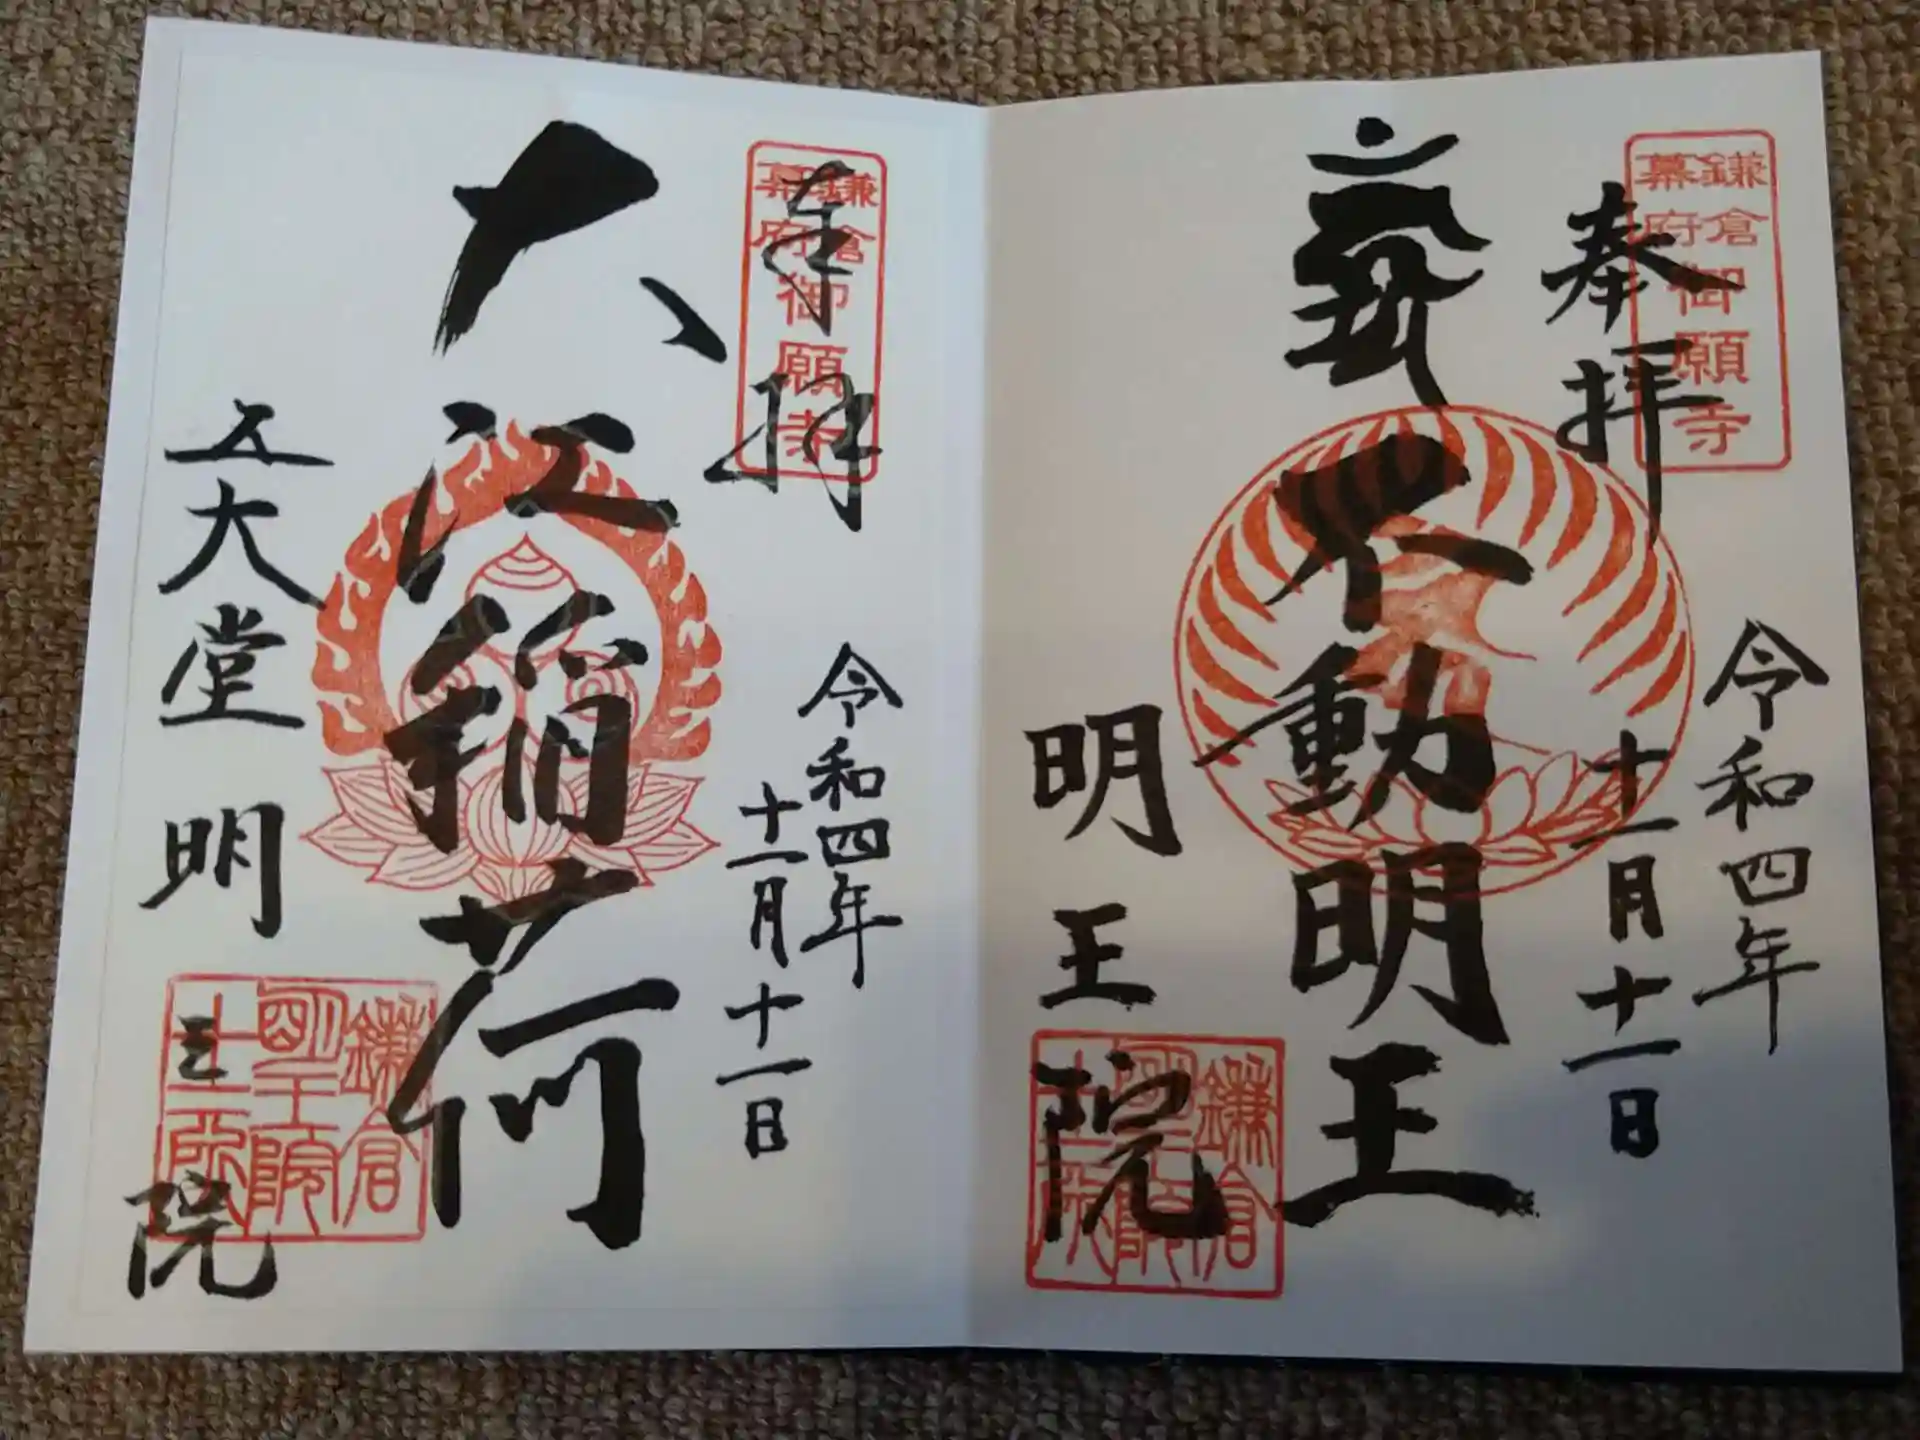 奉拝
鎌倉
幕府
御願寺
令和四年
十一月十一日
不動明王
明王院
鎌倉
明王院
奉拝
鎌倉
幕府
御願寺
令和四年
十一月十一日
大江稲荷
五大堂
明王院
鎌倉
明王院